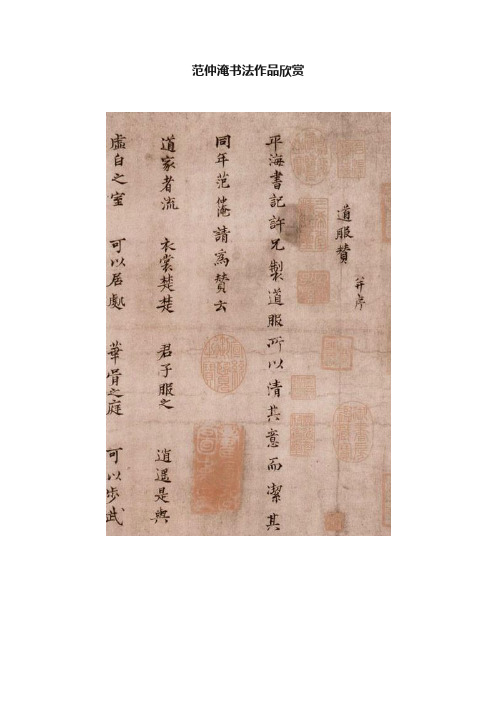 范仲淹书法作品欣赏
道服贊
并序
平海書記許兄製道服所以清其意而潔其
同年范仲淹請為贊云
道家者流 衣裳楚楚 君子服之 逍遥是與
虛白之室 可以居處 華胥之庭 可以步武